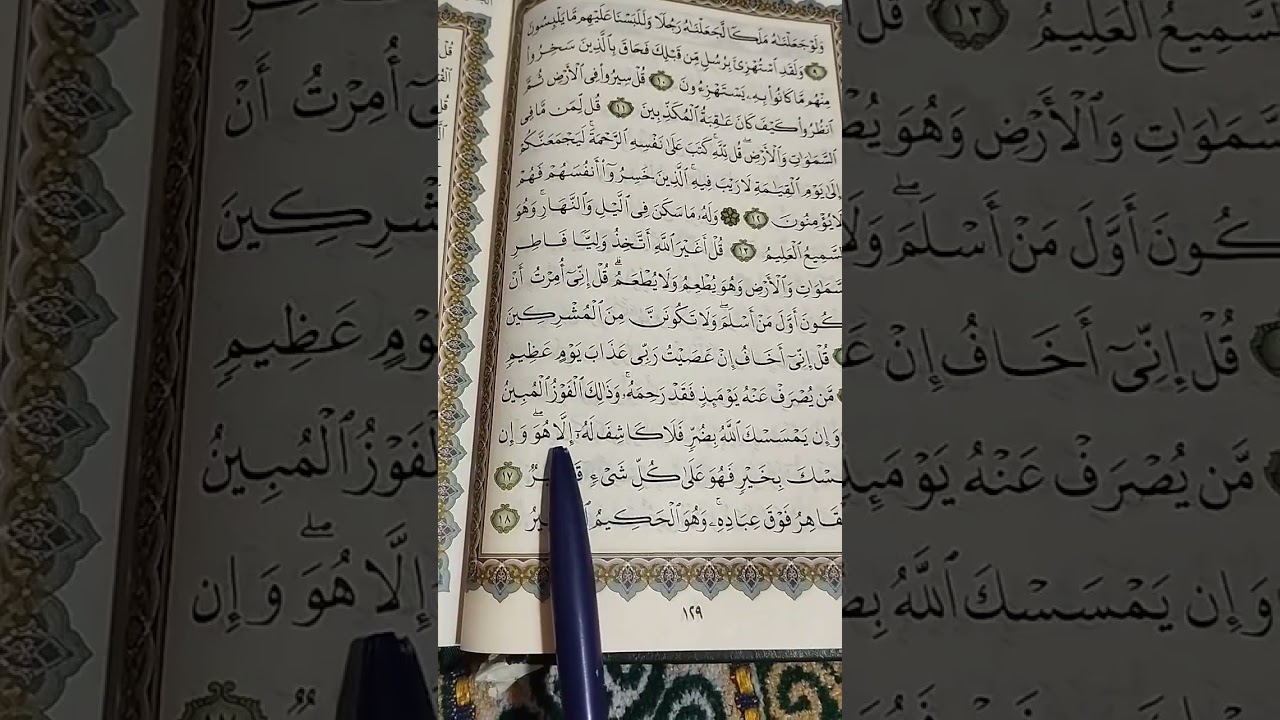 وَلَوْ جَعَلْنَٰهُ مَلَكًا لَّجَعَلْنَٰهُ رَجُلًا وَلَلَبَسْنَا عَلَيْهِم مَّا يَلْبِسُونَ
٩ وَلَقَدِ ٱسْتُهْزِئَ بِرُسُلٍ مِّن قَبْلِكَ فَحَاقَ بِٱلَّذِينَ سَخِرُوا۟
مِنْهُم مَّا كَانُوا۟ بِهِۦ يَسْتَهْزِءُونَ ١٠ قُلْ سِيرُوا۟ فِى ٱلْأَرْضِ ثُمَّ
ٱنظُرُوا۟ كَيْفَ كَانَ عَٰقِبَةُ ٱلْمُكَذِّبِينَ ١١ قُل لِّمَن مَّا فِى
ٱلسَّمَٰوَٰتِ وَٱلْأَرْضِ ۖ قُل لِّلَّهِ ۚ كَتَبَ عَلَىٰ نَفْسِهِ ٱلرَّحْمَةَ ۚ لَيَجْمَعَنَّكُمْ
إِلَىٰ يَوْمِ ٱلْقِيَٰمَةِ لَا رَيْبَ فِيهِ ۚ ٱلَّذِينَ خَسِرُوٓا۟ أَنفُسَهُمْ فَهُمْ
لَا يُؤْمِنُونَ ١٢ ۞ وَلَهُۥ مَا سَكَنَ فِى ٱلَّيْلِ وَٱلنَّهَارِ ۚ وَهُوَ
ٱلسَّمِيعُ ٱلْعَلِيمُ ١٣ قُلْ أَغَيْرَ ٱللَّهِ أَتَّخِذُ وَلِيًّا فَاطِرِ
ٱلسَّمَٰوَٰتِ وَٱلْأَرْضِ وَهُوَ يُطْعِمُ وَلَا يُطْعَمُ ۗ قُلْ إِنِّىٓ أُمِرْتُ أَنْ
كُونَ أَوَّلَ مَنْ أَسْلَمَ ۖ وَلَا تَكُونَنَّ مِنَ ٱلْمُشْرِكِينَ
قُلْ إِنِّىٓ أَخَافُ إِنْ عَصَيْتُ رَبِّى عَذَابَ يَوْمٍ عَظِيمٍ
مَّن يُصْرَفْ عَنْهُ يَوْمَئِذٍ فَقَدْ رَحِمَهُۥ ۚ وَذَٰلِكَ ٱلْفَوْزُ ٱلْمُبِينُ
وَإِن يَمْسَسْكَ ٱللَّهُ بِضُرٍّ فَلَا كَاشِفَ لَهُۥٓ إِلَّا هُوَ ۖ وَإِن
سْكَ بِخَيْرٍ فَهُوَ عَلَىٰ كُلِّ شَىْءٍ ١٧
قَاهِرُ فَوْقَ عِبَادِهِۦ ۚ وَهُوَ ٱلْحَكِيمُ ١٨
١٢٩